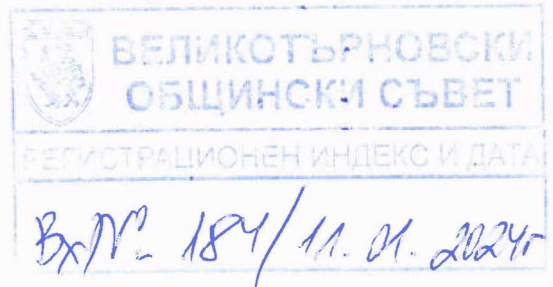 ВЕЛИКОТЪРНОВСКИ
ОБЩИНСКИ СЪВЕТ
РЕГИСТРАЦИОНЕН ИНДЕКС И ДАТА
Вх № 184/11.01.2024г